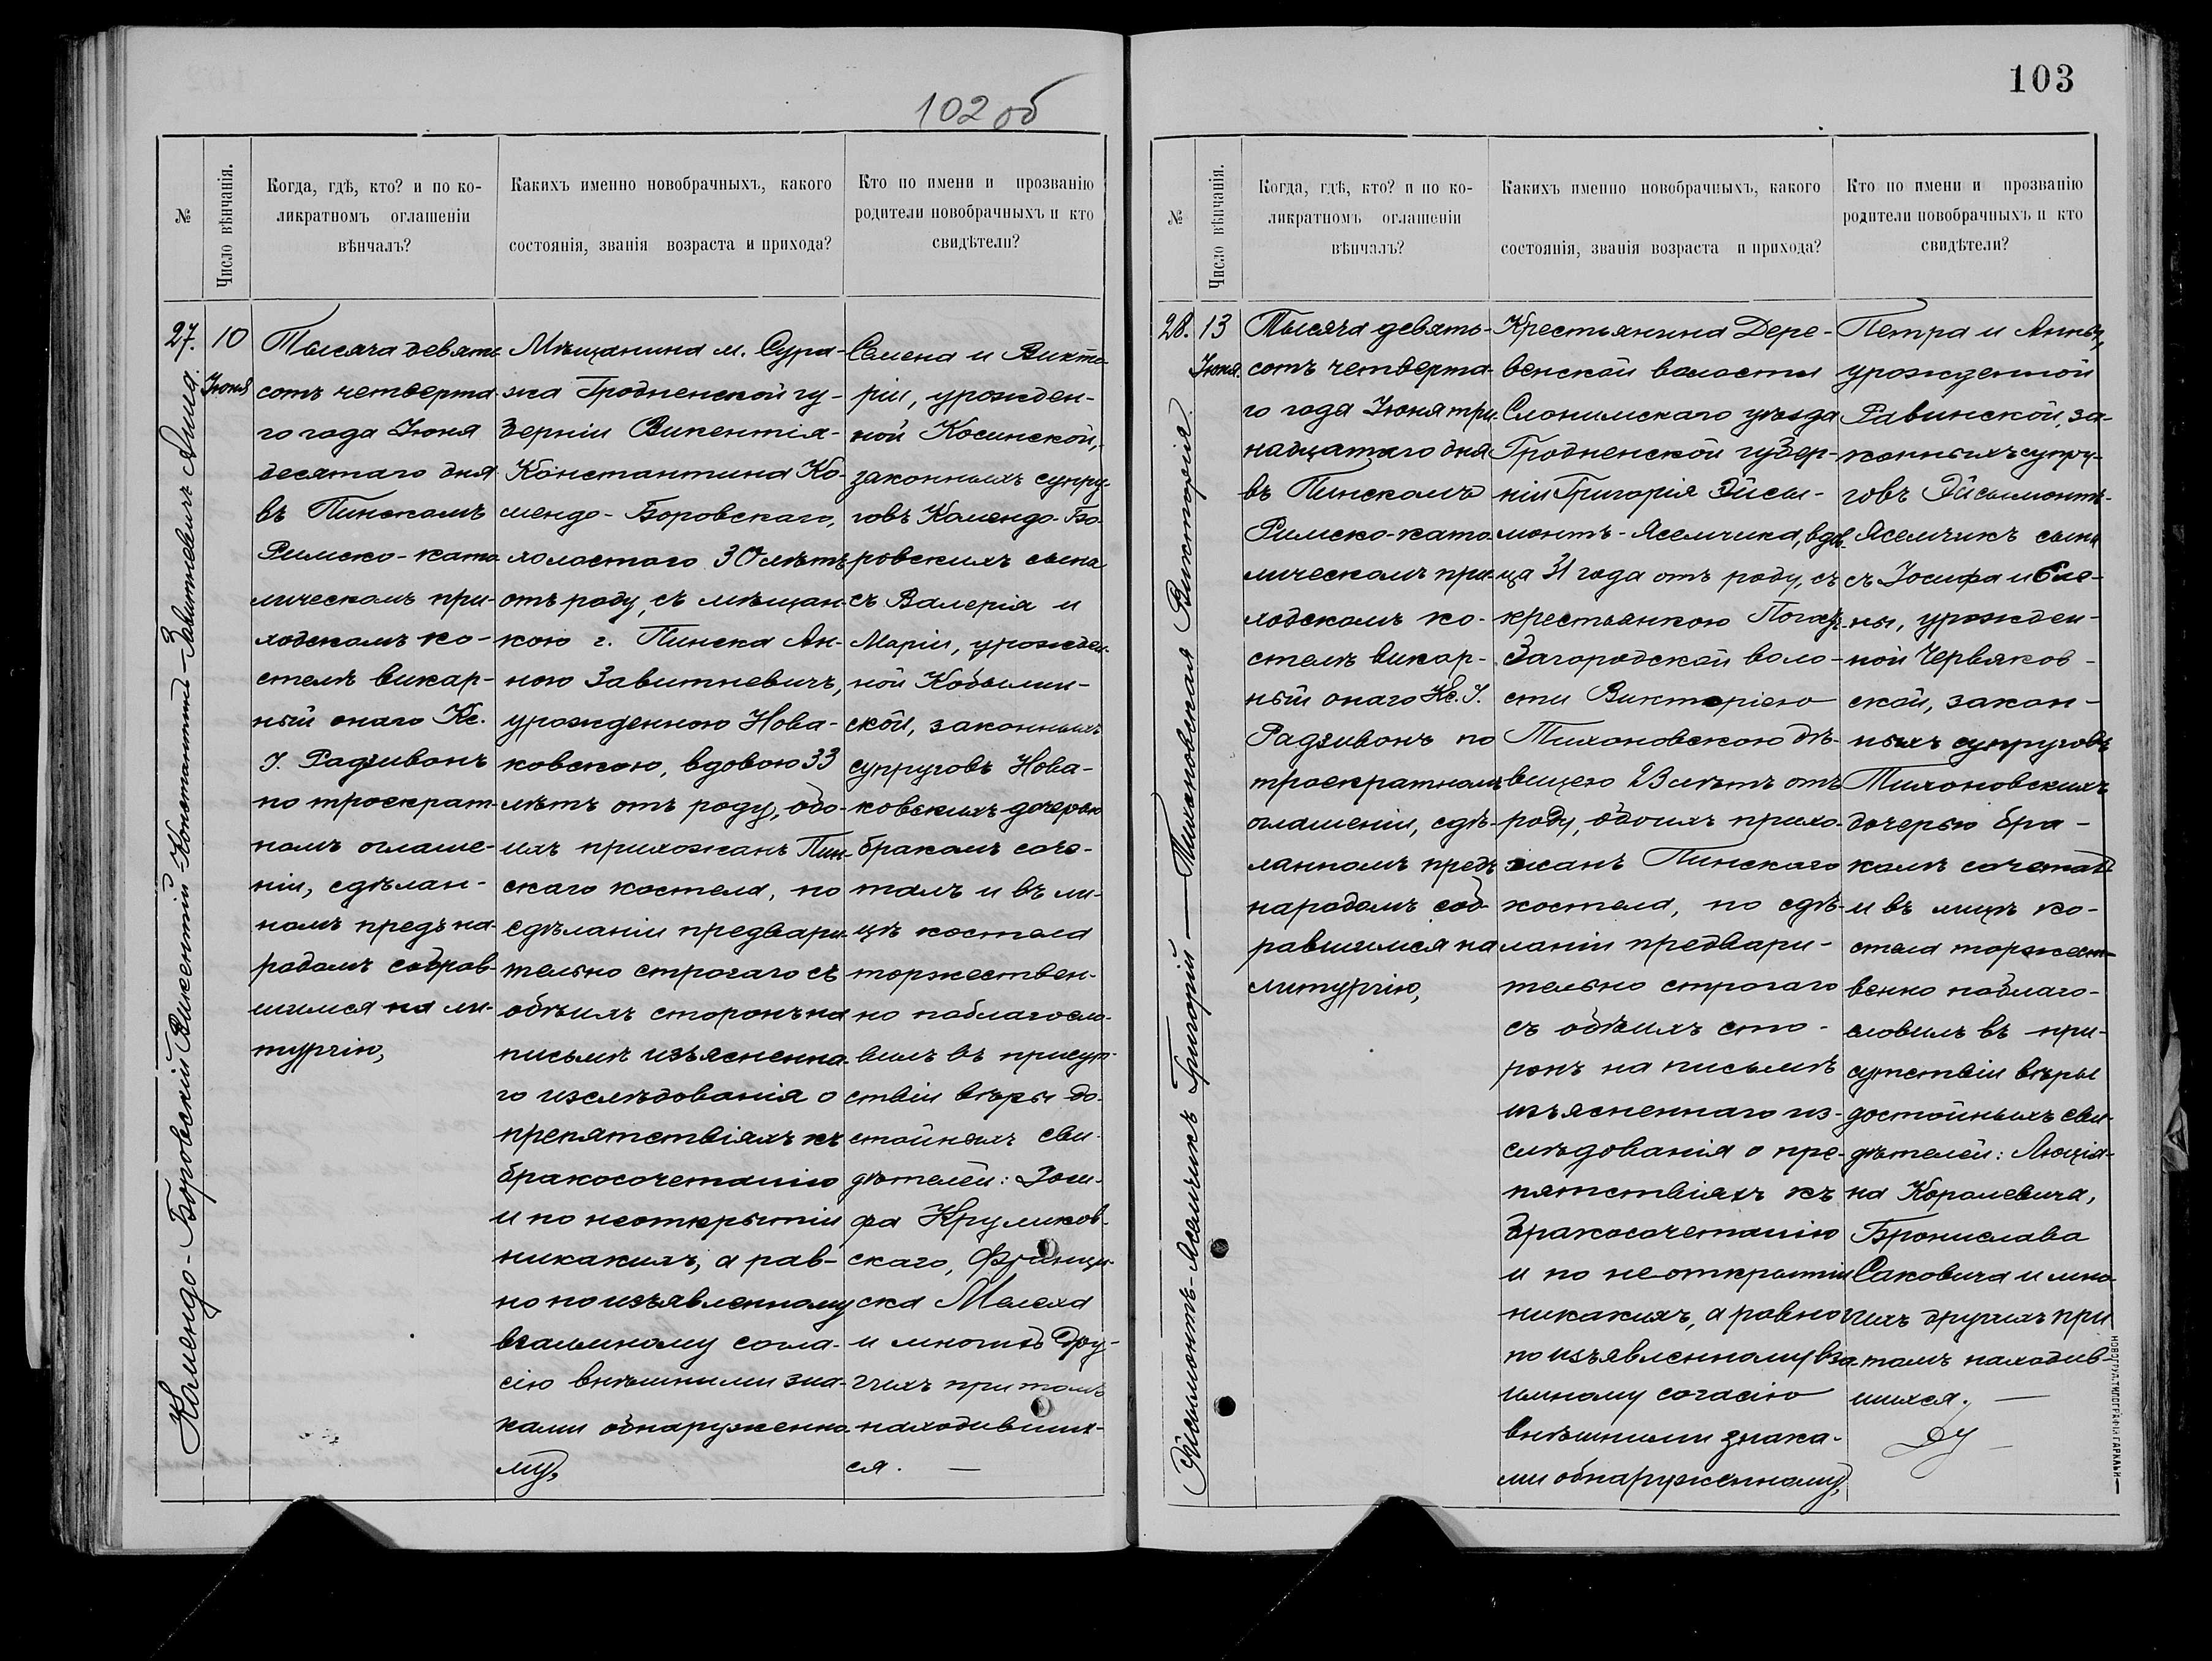 102 об
№
Число вѣнчанія.
Когда, гдѣ, кто? и по ко-
ликратномъ оглашеніи
вѣнчалъ?
Какихъ именно новобрачныхъ, какого
состоянія, званія возраста и прихода?
Кто по имени и прозванію
родители новобрачныхъ и кто
свидѣтели?
27.
10
Іюня
Комендо-Боровскій Викентій-Константинъ — Завитневичъ Анна.
Тысяча девять-
сотъ четверта
го года Іюня
десятаго дня
въ Пинскомъ
Римско-като
лическомъ при-
ходскомъ ко-
стелѣ викар-
ный онаго Кс.
І. Радзивонъ
по троекрат-
номъ оглаше-
ніи, сдѣлан-
номъ предъ на-
родомъ собрав-
шимся на ли-
тургію,
Мѣщанина м. Сура-
жа Гродненской гу-
берніи Викентія-
Константина Ко-
мендо-Боровскаго,
холостого 30 лѣтъ
отъ роду, съ мѣщан-
кою г. Пинска Ан-
ною Завитневичъ,
урожденною Нова-
ковскою, вдовою 33
лѣтъ отъ роду, обо-
ихъ прихожанъ Пин-
скаго костела, по
сдѣланіи предвари-
тельно строгаго съ
обѣихъ сторонъ на
письмѣ изъясненна-
го изслѣдованія о
препятствіяхъ къ
бракосочетанію
и по неоткрытіи
никакихъ, а рав-
но по изъявленному
взаимному согла-
сію внѣшними зна-
ками обнаруженно-
му,
Семена и Викто-
ріи, урожден-
ной Косинской,
законныхъ супру-
говъ Комендо-Бо-
ровскихъ сына
съ Валерія и
Маріи, урожден-
ной Кобылин-
ской, законныхъ
супруговъ Нова-
ковскихъ дочерью
бракомъ соче-
талъ и въ ли-
цѣ костела
торжествен-
но поблагосло-
вилъ въ присут-
ствіи вѣры до-
стойныхъ сви-
дѣтелей: Іоси-
фа Круликов-
скаго, Франци-
ска Мелеха
и многихъ дру-
гихъ при томъ
находивших-
ся. —
103
№
Число вѣнчанія.
Когда, гдѣ, кто? и по ко-
ликратномъ оглашеніи
вѣнчалъ?
Какихъ именно новобрачныхъ, какого
состоянія, званія возраста и прихода?
Кто по имени и прозванію
родители новобрачныхъ и кто
свидѣтели?
28.
13
Іюня.
Эйсымонтъ-Яселчикъ Григорій — Тихоновская Викторія.
Тысяча девять-
сотъ четверта-
го года Іюня три-
надцатаго дня
въ Пинскомъ
Римско-като-
лическомъ при-
ходскомъ ко-
стелѣ викар-
ный онаго Кс. І.
Радзивонъ по
троекратномъ
оглашеніи, сдѣ-
ланномъ предъ
народомъ соб-
равшимся на
литургію,
Крестьянина Дере-
венской волости
Слонимскаго уѣзда
Гродненской губер-
ніи Григорія Эйсы-
монтъ-Яселчика, вдов-
ца 31 года отъ роду, съ
крестьянкою
Загородской воло-
сти Викторіею
Тихоновскою дѣ-
вицею 23 лѣтъ отъ
роду, обоихъ прихо-
жанъ Пинскаго
костела, по сдѣ-
ланіи предвари-
тельно строгаго
съ обѣихъ сто-
ронъ на письмѣ
изъясненнаго из-
слѣдованія о пре-
пятствіяхъ къ
бракосочетанію
и по неоткрытіи
никакихъ, а равно
по изъявленному вза-
имному согасію
внѣшними знака-
ми обнаруженному,
Петра и Анны,
урожденной
Равинской, за-
конныхъ супру-
говъ Эйсымонтъ-
Яселчикъ сына
съ Іосифа и Еле-
ны, урожден-
ной Червяков-
ской, закон-
ныхъ супруговъ
Тихоновскихъ
дочерью бра-
комъ сочеталъ
и въ лицѣ ко-
стела торжест-
венно поблаго-
словилъ въ при-
сутствіи вѣры
достойныхъ сви-
дѣтелей: Люція-
на Королевича,
Бронислава
Саковича и мно-
гихъ другихъ при
томъ находив-
шихся. —